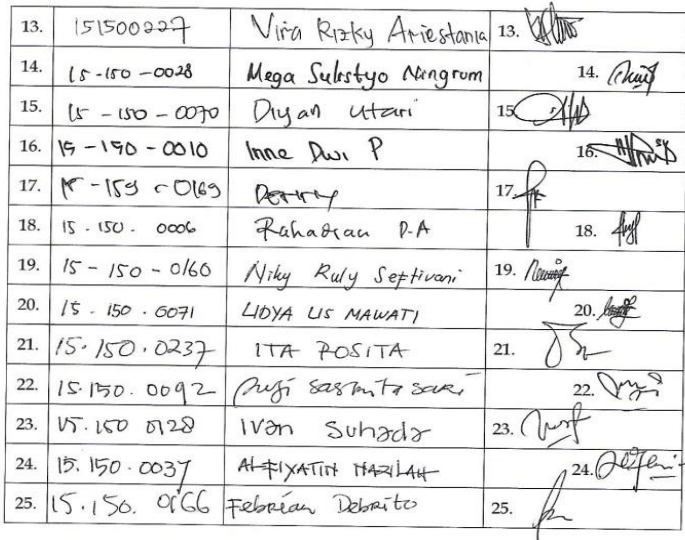 13. 151500227 Vira Rizky Ariestania 13.
14. 15-150-0028 Mega Sulistyo Ningrum 14.
15. 15-150-0070 Diyan Utari 15.
16. 15-150-0010 Inne Dwi P 16.
17. 17.
18. 15.150.0006 Rahadian D.A 18.
19. 15-150-0160 Niky Ruly Septivani 19.
20. 15.150.0071 LIDYA LIS MAWATI 20.
21. 15.150.0237 ITA ROSITA 21.
22. 15.150.0092 sasmita sari 22.
23. 15.150 0128 Ivan Suhada 23.
24. 15.150.0037 ALFIYATIN NAZILAH 24.
25. 15.150.0166 Febrian Debrito 25.